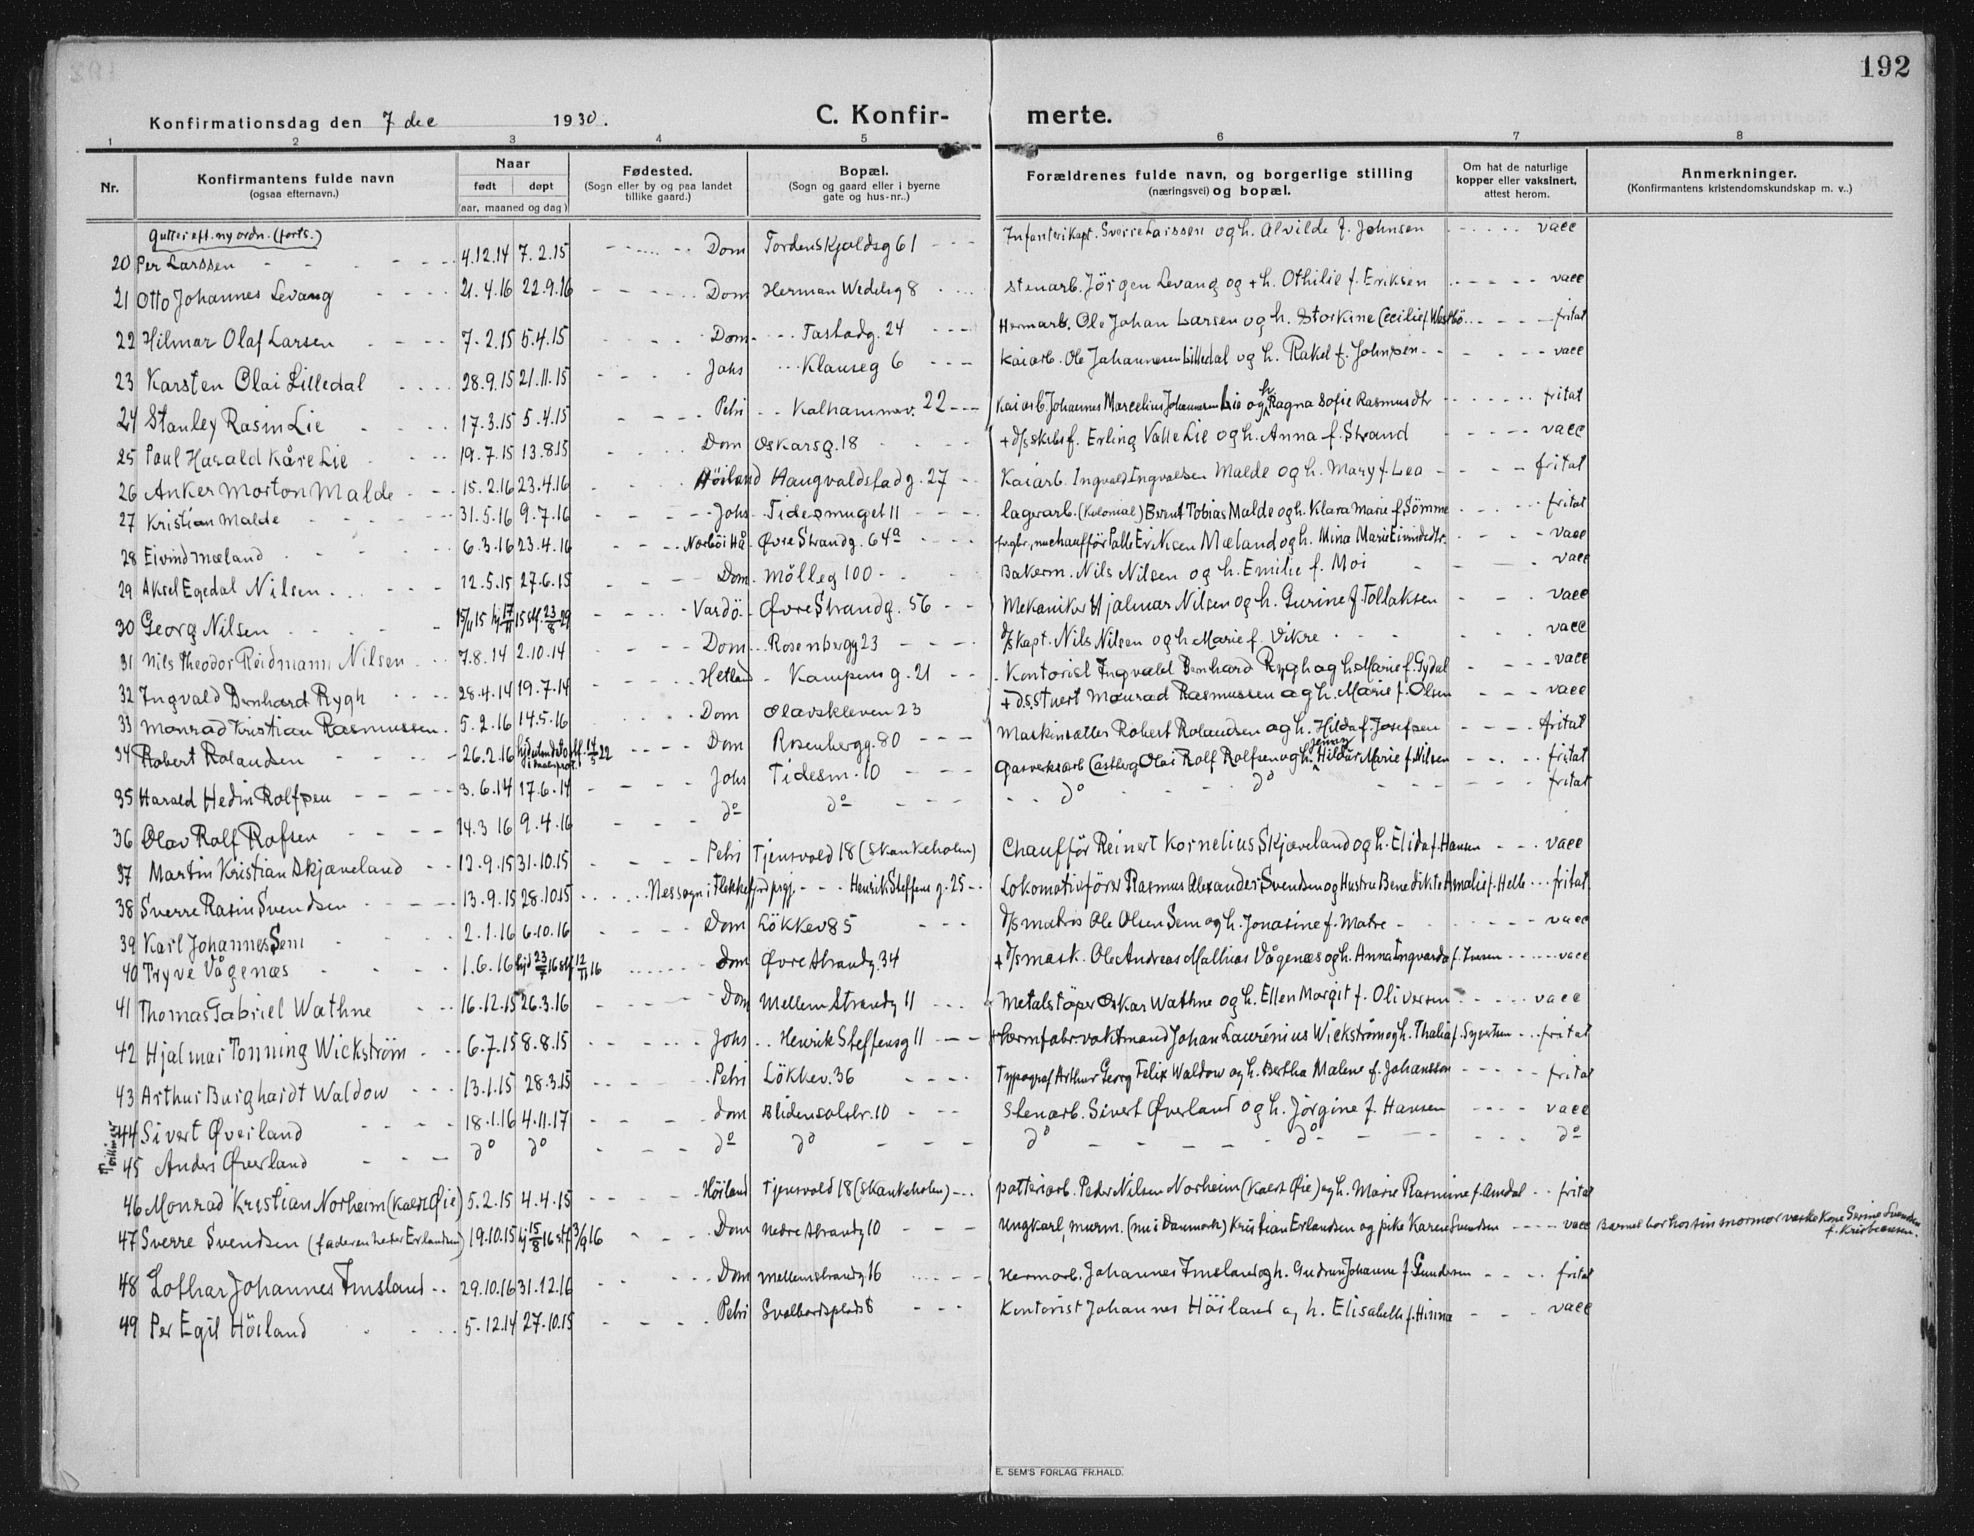 192
Konfirmationsdag den 7 dec 1930. C. Konfir- merte.
1 2 3 4 5 6 7 8
Nr. Konfirmantens fulde navn (ogsaa efternavn.) Naar født døpt (aar, maaned og dag) Fødested. (Sogn eller by og paa landet tillike gaard.) Bopæl. (Sogn og gaard eller i byerne gate og hus-nr..) Forældrenes fulde navn, og borgerlige stilling (næringsvei) og bopæl. Om hat de naturlige kopper eller vaksinert, attest herom. Anmerkninger. (Konfirmantens kristendomskundskap m. v..)
Gutter eft. ny ordn. (forts.)
20 Per Larssen 4.12.14 7.2.15 Dom Tordenskjoldsg 61 Infanterikapt. Sverre Larssen og h. Alvilde f. Johnsen vacc
21 Otto Johannes Levang 21.4.16 22.9.16 Dom Herman Wedelsg 8 Stenarb. Jörgen Levang og + h. Othilie f. Eriksen vacc
22 Hilmar Olaf Larsen 7.2.15 5.4.15 Dom Tastadg. 24 Hermarb. Ole Johan Larsen og h. Storkine Cecilie f. Westbö fritat
23 Karsten Olai Lilledal 28.9.15 21.11.15 Johs Klauseg 6 Kaiarb. Ole Johannesen Lilledal og h. Rakel f. Johnsen vacc
24 Stanley Rasin Lie 17.3.15 5.4.15 Petri Kalhammerv. 22 Kaiarb. Johannes Marcelius Johannesen Lie og h. Ragna Sofie Rasmusdtr fritat
25 Paul Harald Kåre Lie 19.7.15 13.8.15 Dom Oskarsg. 18 + d/s skibsf. Erling Valle Lie og h. Anna f. Strand vacc
26 Anker Morton Malde 15.2.16 23.4.16 Höiland Haugvaldstadg. 27 Kaiarb. Ingvald Ingvalsen Malde og h. Mary f. Lea fritat
27 Kristian Malde 31.5.16 9.7.16 Johs Tidesmuget 11 lagerarb. (Kolonial) Bernt Tobias Malde og h. Klara Marie f. Sömme fritat
28 Eivind Mæland 6.3.16 23.4.16 Norböi Hå Øvre Strandg. 64a fogbr., nu chaufför Palle Eriksen Mæland og h. Mina Marie Eivindsdtr. vacc
29 Aksel Egedal Nilsen 12.5.15 27.6.15 Dom Mölleg 100 Bakerm. Nils Nilsen og h. Emilie f. Moi vacc
30 Georg Nilsen 15/11 15 hj 17/11 15 stf. 23/8 29 Vardö Øvre Strandg. 56 Mekaniker Hjalmar Nilsen og h. Gurine f. Tollaksen vacc
31 Nils Theodor Reidmann Nilsen 7.8.14 2.10.14 Dom Rosenbergg 23 d/s kapt. Nils Nilsen og h. Marie f. Vikre vacc
32 Ingvald Bernhard Rygh 28.4.14 19.7.14 Hetland Kampens g. 21 Kontorist Ingvald Bernhard Rygh og h. Marie f. Gydal vacc
33 Monrad Kristian Rasmussen 5.2.16 14.5.16 Dom Olavskleven 23 + d.s. stuert Monrad Rasmussen og h. Marie f. Olsen vacc
34 Robert Rolandsen 26.2.16 stf. 14/5 22 Dom Rosenbergg. 80 Maskinsætter Robert Rolandsen og h. Hilda f. Josefsen fritat
35 Harald Hedin Rolfsen 3.6.14 17.6.14 Johs Tidesm. 10 Gasverksarb Castberg Olai Rolf Rolfsen og h. Jenny Hildur Marie f. Nilsen fritat
36 Olav Rolf Rofsen 14.3 16 9.4.16 do do do do fritat
37 Martin Kristian Skjæveland 12.9.15 31.10.15 Petri Tjensvold 18 (Skankeholen) Chaufför Reinert Kornelius Skjæveland og h. Elida f. Hansen vacc
38 Sverre Rasin Svendsen 13.9.15 28.10.15 Nes sogn i Flekkefjord prgj. Henrik Steffens g. 25 Lokomotivförer Rasmus Alexander Svendsen og Hustru Benedikte Amalie f. Helle fritat
39 Karl Johannes Sem 2.1.16 6.10.16 Dom Lökkev 85 d/s matros Ole Olsen Sem og h. Jonasine f. Matre vacc
40 Tryve Vågenæs 1.6.16 hjd 23/7 16 stf 12/11 16 Dom Øvre Strandg. 34 + d/s mask. Ole Andreas Mathias Vågenæs og h. Anna Ingvarda f. Iversen vacc
41 Thomas Gabriel Wathne 16.12.15 26.3.16 Dom Mellem Strandg 11 Metalstöper Oskar Wathne og h. Ellen Margit f. Oliversen vacc
42 Hjalmar Tonning Wickström 6.7.15 8.8.15 Johs Henrik Steffensg 11 + hermfabr. vaktmand Johan Laurénius Wickström og h. Thalia f. Syvertsen fritat
43 Arthur Burghardt Waldow 13.1.15 28.3.15 Petri Lökkev. 36 Typograf Arthur Georg Felix Waldow og h. Bertha Malene f. Johansson fritat
Tvillinger
44 Sivert Øverland 18.1.16 4.11.17 dom Blidensolstr. 10 Stenarb. Sivert Øverland og h. Jörgine f. Hansen vacc
45 Anders Øverland do do do do do do do
46 Monrad Kristian Norheim (kaldt Øie) 5.2.15 4.4.15 Höiland Tjensvold 18 (Skankeholen) potteriarb. Peder Nilsen Norheim (kaldt Øie) og h. Marie Rasmine f. Amdal fritat
47 Sverre Svendsen (faderen heter Erlandsen) 19.10.15 hj 15/8 16 stf 3/9 16 Dom Nedre Strandg 10 Ungkarl, murm. (nu i Danmark) Kristian Erlandsen og pike Karen Svendsen vacc Barnet bor hos sin mormor vaskekone Serine Svendsen f. Kristiansen.
48 Lothar Johannes Imsland 29.10.16 31.12.16 Dom Mellemstrandg 16 Hermarb. Johannes Imsland og h. Gudrun Johanne f. Gundersen fritat
49 Per Egil Höiland 5.12.14 27.10.15 Petri Svalbardsplads 8 Kontorist Johannes Höiland og h. Elisabeth f. Hinna vacc
E. SEM'S FORLAG FR.HALD.